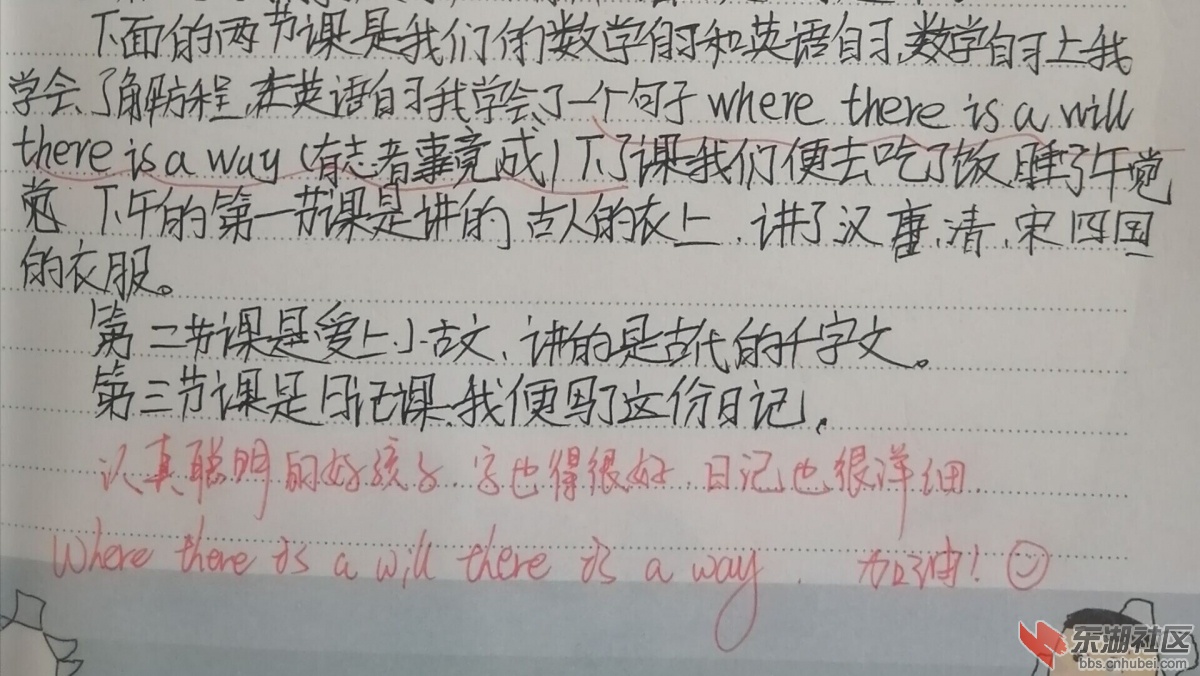 下面的两节课是我们的数学自习和英语自习,数学自习上我
学会了解方程,在英语自习我学会了一个句子where there is a will
there is a way(有志者事竟成)下了课我们便去吃了饭,睡了午觉
觉 下午的第一节课是讲的 古人的衣上,讲了汉、唐、清、宋四国
的衣服。
第二节课是爱上小古文、讲的是古代的千字文。
第三节课是日记课,我便写了这份日记,
认真聪明的好孩子,字也得很好,日记也很详细.
Where there is a will there is a way. 加油!
东湖社区
bbs.cnhubei.com